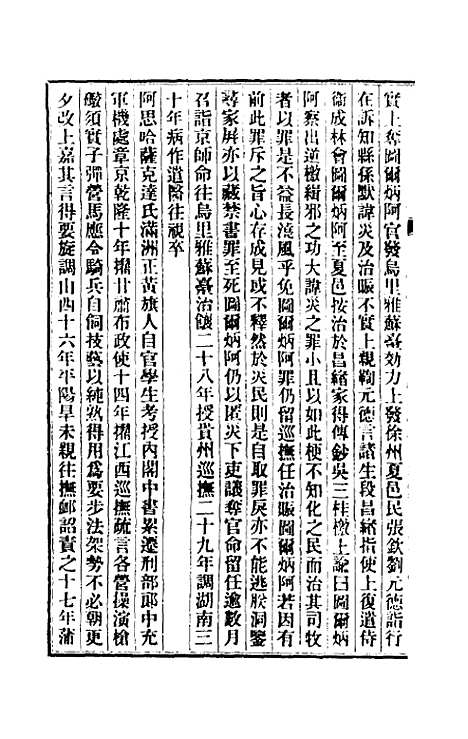 實上奪圖爾炳阿官發烏里雅蘇臺効力上發徐州夏邑民張欽劉元德詣行
在訴知縣孫默諱災及治賑不實上親鞫元德言諸生段昌緒指使上復遣侍
衞成林會圖爾炳阿至夏邑按治於昌緒家得傳鈔吳三桂檄上諭曰圖爾炳
阿察出逆檄緝邪之功大諱災之罪小且以如此梗不知化之民而治其司牧
者以罪是不益長澆風乎免圖爾炳阿罪仍留巡撫任治賑圖爾炳阿若因有
前此罪斥之旨心存成見或不釋然於災民則是自取罪戾亦不能逃朕洞鑒
尋家屏亦以藏禁書罪至死圖爾炳阿仍以匿災下吏議奪官命留任逾數月
召詣京師命往烏里雅蘇臺治餉二十八年授貴州巡撫二十九年調湖南三
十年病作遣醫往視卒
阿思哈薩克達氏滿洲正黃旗人自官學生考授內閣中書累遷刑部郎中充
軍機處章京乾隆十年擢甘肅布政使十四年擢江西巡撫疏言各營操演槍
礮須實子彈營馬應令騎兵自飼技藝以純熟得用爲要步法架勢不必朝更
夕改上嘉其言得要旋調山西十六年平陽旱未親往撫卹詔責之十七年蒲